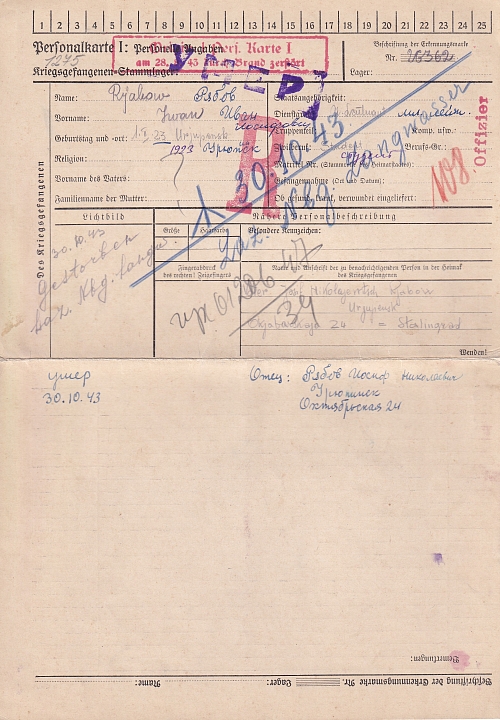 1 2 3 4 5 6 7 8 9 10 11 12 13 14 15 16 17 18 19 20 21 22 23 24 25
Personalkarte I: Personelle Angaben
Karte I
am 28. 43 Brand zerstört
Beschriftung der Erkennungsmarke
1245
Kriegsgefangenen-Stammlager:
Nr.
Lager:
УМЕР
Des Kriegsgefangenen
Name: Rjabow Рябов
Staatsangehörigkeit:
Vorname: Iwan Иван Иосифович
Dienstgrad: Leutnant
Truppenteil: Komp. usw.:
Geburtstag und -ort: 1. 23 Urjupinsk
1923 Урюпинск
Zivilberuf: Student Berufs-Gr.:
Religion:
Matrikel Nr. (Stammrolle des Heimatstaates):
Vorname des Vaters:
Gefangennahme (Ort und Datum):
Familienname der Mutter:
Ob gesund, krank, verwundet eingeliefert:
30.10.43
Laz. Nbg. Langwasser
108
Offizier
R
Lichtbild
Nähere Personalbeschreibung
Größe
Haarfarbe
Besondere Kennzeichen:
30.10.43
Gestorben
Laz. Nbg. Langw.
Fingerabdruck
des rechten! Zeigefingers
Name und Anschrift der zu benachrichtigenden Person in der Heimat
des Kriegsgefangenen
01206 47
39
Nikolajewitsch Rjabow
Urjupinsk
24 = Stalingrad
Wenden!
умер
30.10.43
Отец: Рябов Иосиф Николаевич
Урюпинск
Октябрьская 24
Bemerkungen:
Beschriftung der Erkennungsmarke Nr.
Lager:
Name: